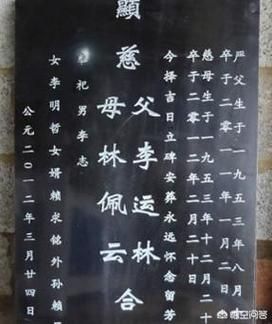 严父生于一九五三年八月
卒于二零一一年一月二日
慈母生于一九五三年十二月二十
卒于二零一二年二月二十日
今择吉日立碑安葬永远怀念留芳
顯
慈父李运林
母林佩云合
祀男李志
女李明哲女婿赖求铭外孙赖
公元二0一二年三月廿四日
悟空问答